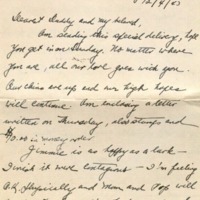 12/4/43
Dearest Daddy and my beloved,
Am sending this special delivery, hope
you get it on Sunday. No matter where
you are, all our love goes with you.
Our chins are up and our high hopes
will continue. Am enclosing a letter
written on Thursday, also stamps and
in money order
Jimmie is as happy as a lark -
I wish it were contagious - I'm feeling
O.K. physically and Mom and Pop will